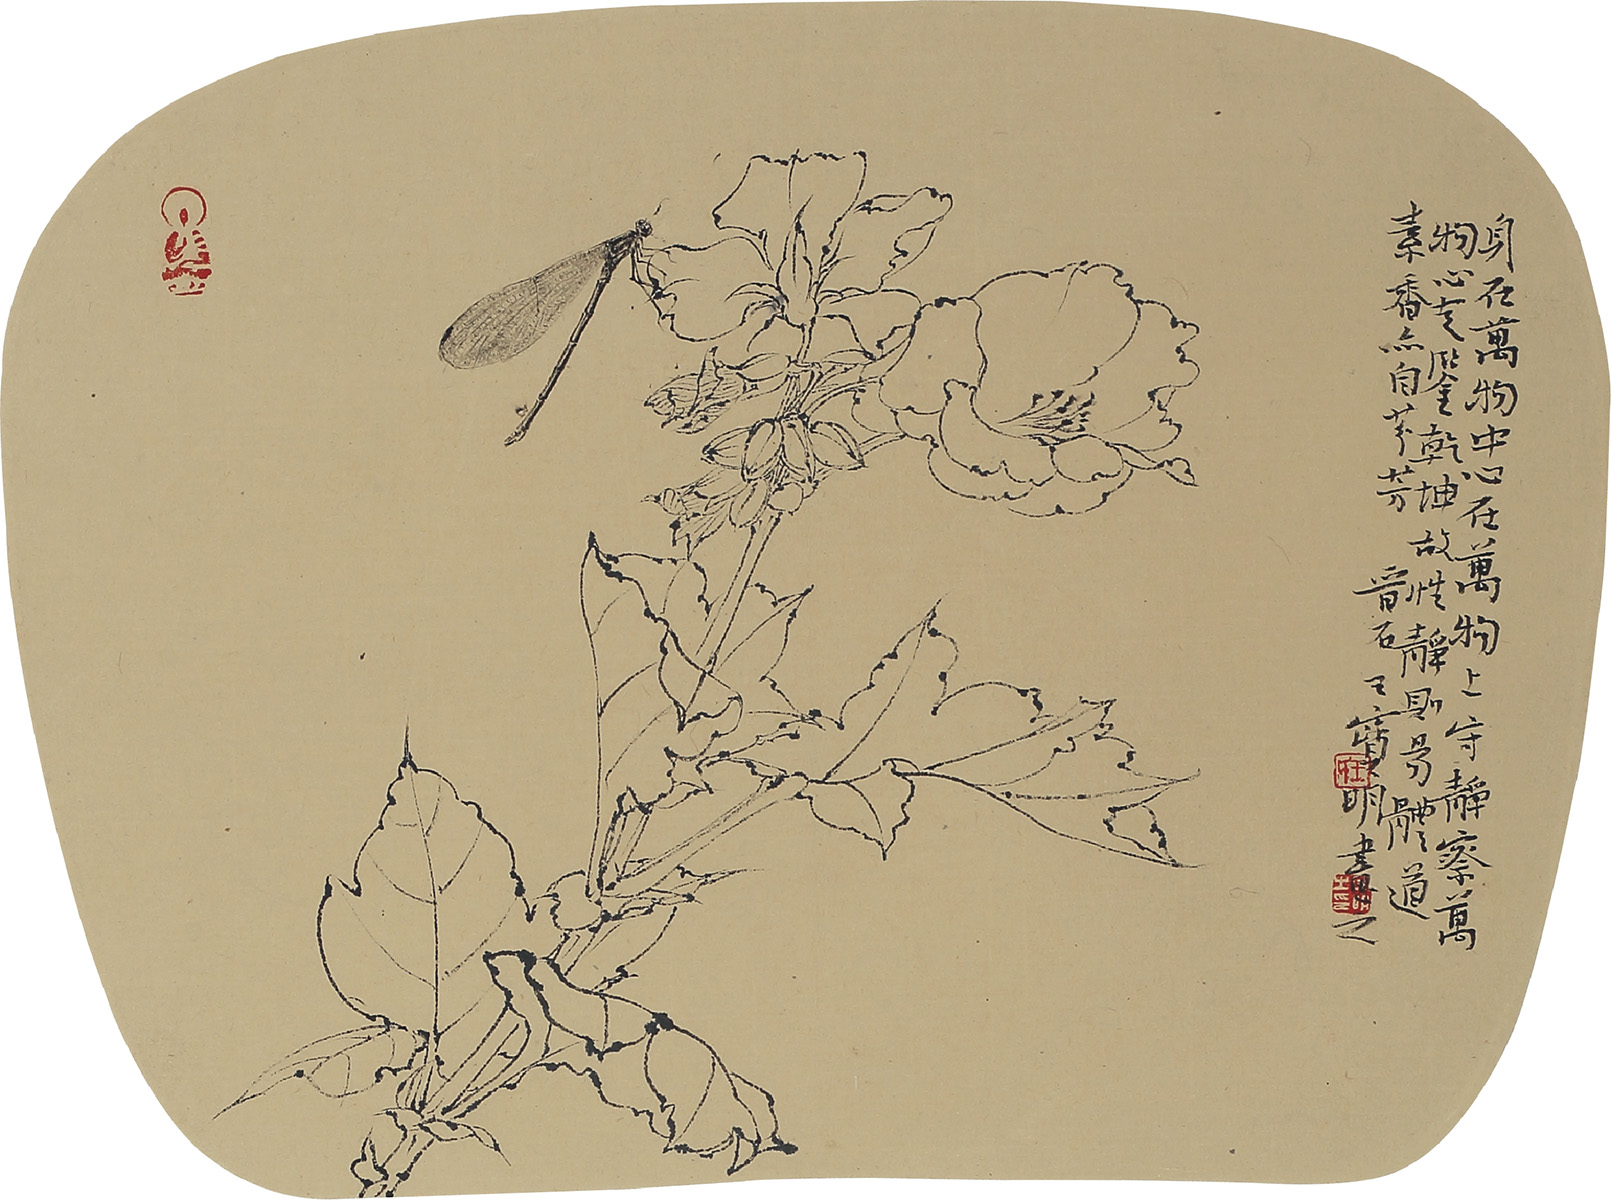 身在萬物中心在萬物上守靜察萬
物心之鑒乾坤故性靜則易體道
素香亦自芬芳
晋石 王寶明畫之